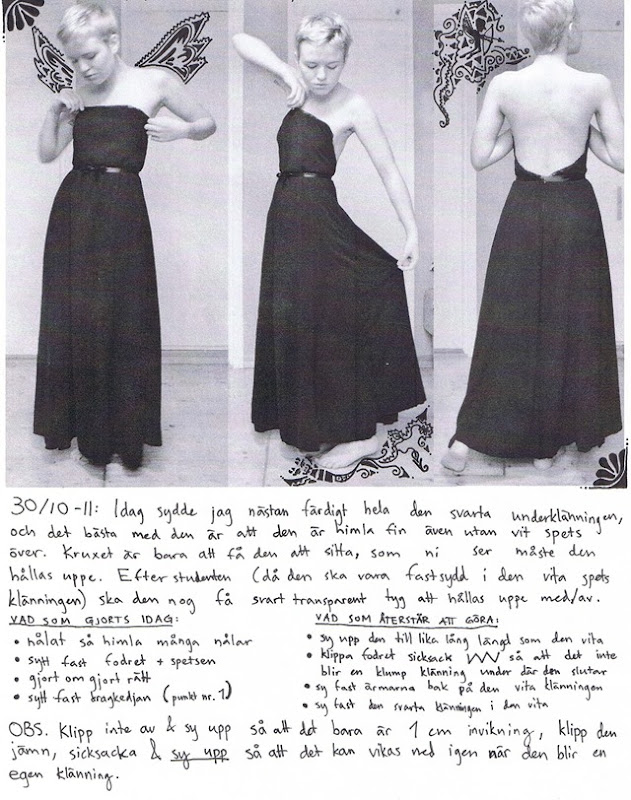 30/10-11: Idag sydde jag nästan färdigt hela den svarta underklänningen,
och det bästa med den är att den är himla fin även utan vit spets
över. Kruxet är bara att få den att sitta, som ni ser måste den
hållas uppe. Efter studenten (då den ska vara fastsydd i den vita spets
klänningen) ska den nog få svart transparent tyg att hållas uppe med/av.
VAD SOM GJORTS IDAG:
• nålat så himla många nålar
• sytt fast fodret + spetsen
• gjort om gjort rätt
• sytt fast bragkedjan (punkt nr. 1)
VAD SOM ÅTERSTÅR ATT GÖRA:
• sy upp den till lika lång längd som den vita
• klippa fodret sicksack så att det inte
blir en klump klänning under där den slutar
• sy fast ärmarna bak på den vita klänningen
• sy fast den svarta klänningen i den vita
OBS. Klipp inte av & sy upp så att det bara är 1 cm invikning, klipp den
jämn, sicksacka & sy upp så att det kan vikas ned igen när den blir en
egen klänning.